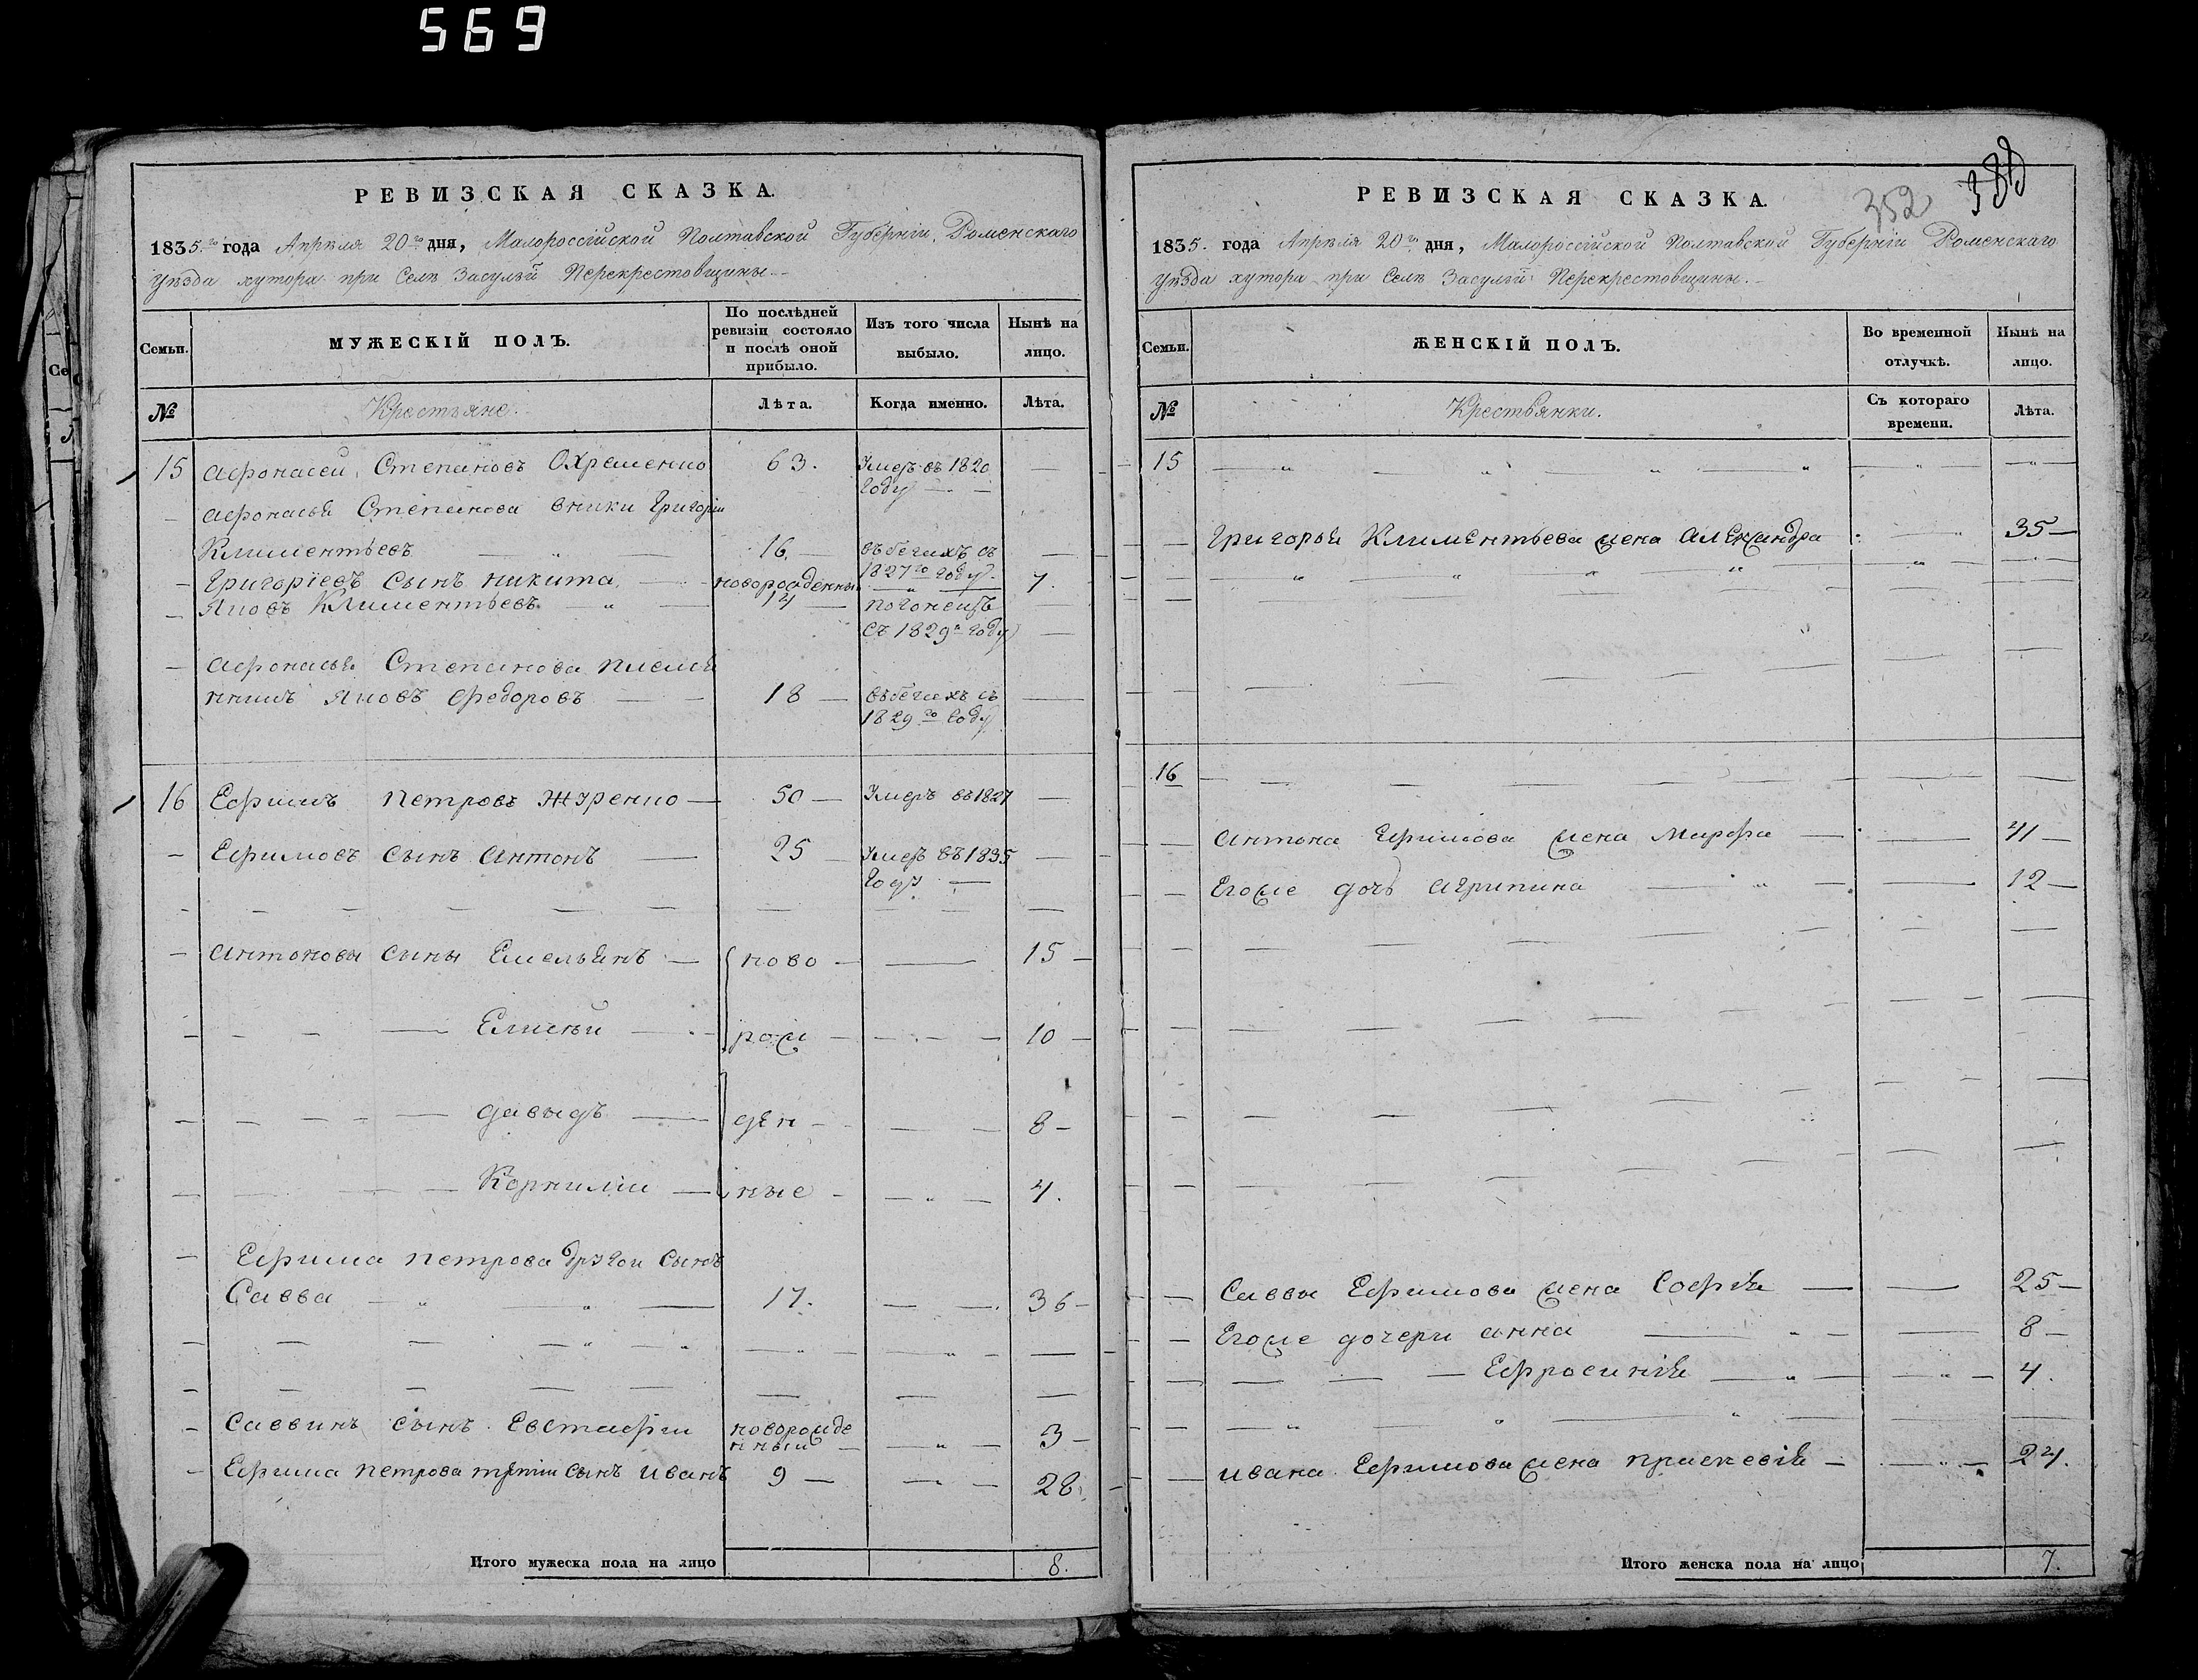 569
РЕВИЗСКАЯ СКАЗКА.
1835.го года Апрѣля 20го дня, Малороссійской Полтавской Губерніи, Роменскаго
уѣзда хутора при Селѣ Засульй Перекрестовщины.
Семьи.
МУЖЕСКІЙ ПОЛЪ.
По послѣдней ревизіи состояло и послѣ оной прибыло.
Изъ того числа выбыло.
Нынѣ на лицо.
№
Крестьяне.
Лѣта.
Когда именно.
Лѣта.
15 Афонасей Степановъ Охременко 63. Умеръ въ 1820
году
Афонасья Степанова внуки Григорій
Климентьевъ 16 въбегахъ съ
1827го году
Григорїевъ сынъ никита новорожденный 7.
Яковъ Климентьевъ 14
съ 1829го году
Афонасья Степанова племя
нникъ Яковъ Федоровъ 18 въбегахъ съ
1829го году
16 Ефимъ Петровъ Журенко 50 Умеръ въ 1827
Ефимовъ сынъ Антонъ 25 Умеръ въ 1835
году
Антоновы сыны Емельянъ ново 15
Елисѣй рож 10
давыдъ ден 8
Корнилій ные 4.
Ефима петрова другой сынъ
Савва 17. 36
Саввинъ сынъ Евстафій новорожде
нный 3
Ефима петрова третій сынъ иванъ 9 28.
Итого мужеска пола на лицо 8.
352
РЕВИЗСКАЯ СКАЗКА.
1835. года Апрѣля 20го дня, Малороссійской Полтавской Губерніи Роменскаго
уѣзда хутора при Селѣ Засульй Перекрестовщины.
Семьи.
ЖЕНСКІЙ ПОЛЪ.
Во временной отлучкѣ.
Нынѣ на лицо.
№
Крестьянки.
Съ котораго времени.
Лѣта.
15
Григорья Климентьева жена Александра 35
16
антона Ефимова жена Марфа 41
Егоже дочь агрипина 12
Саввы Ефимова жена Софія 25
Егоже дочери анна 8
Ефросинія 4.
ивана Ефимова жена праскевія 24.
Итого женска пола на лицо 7.